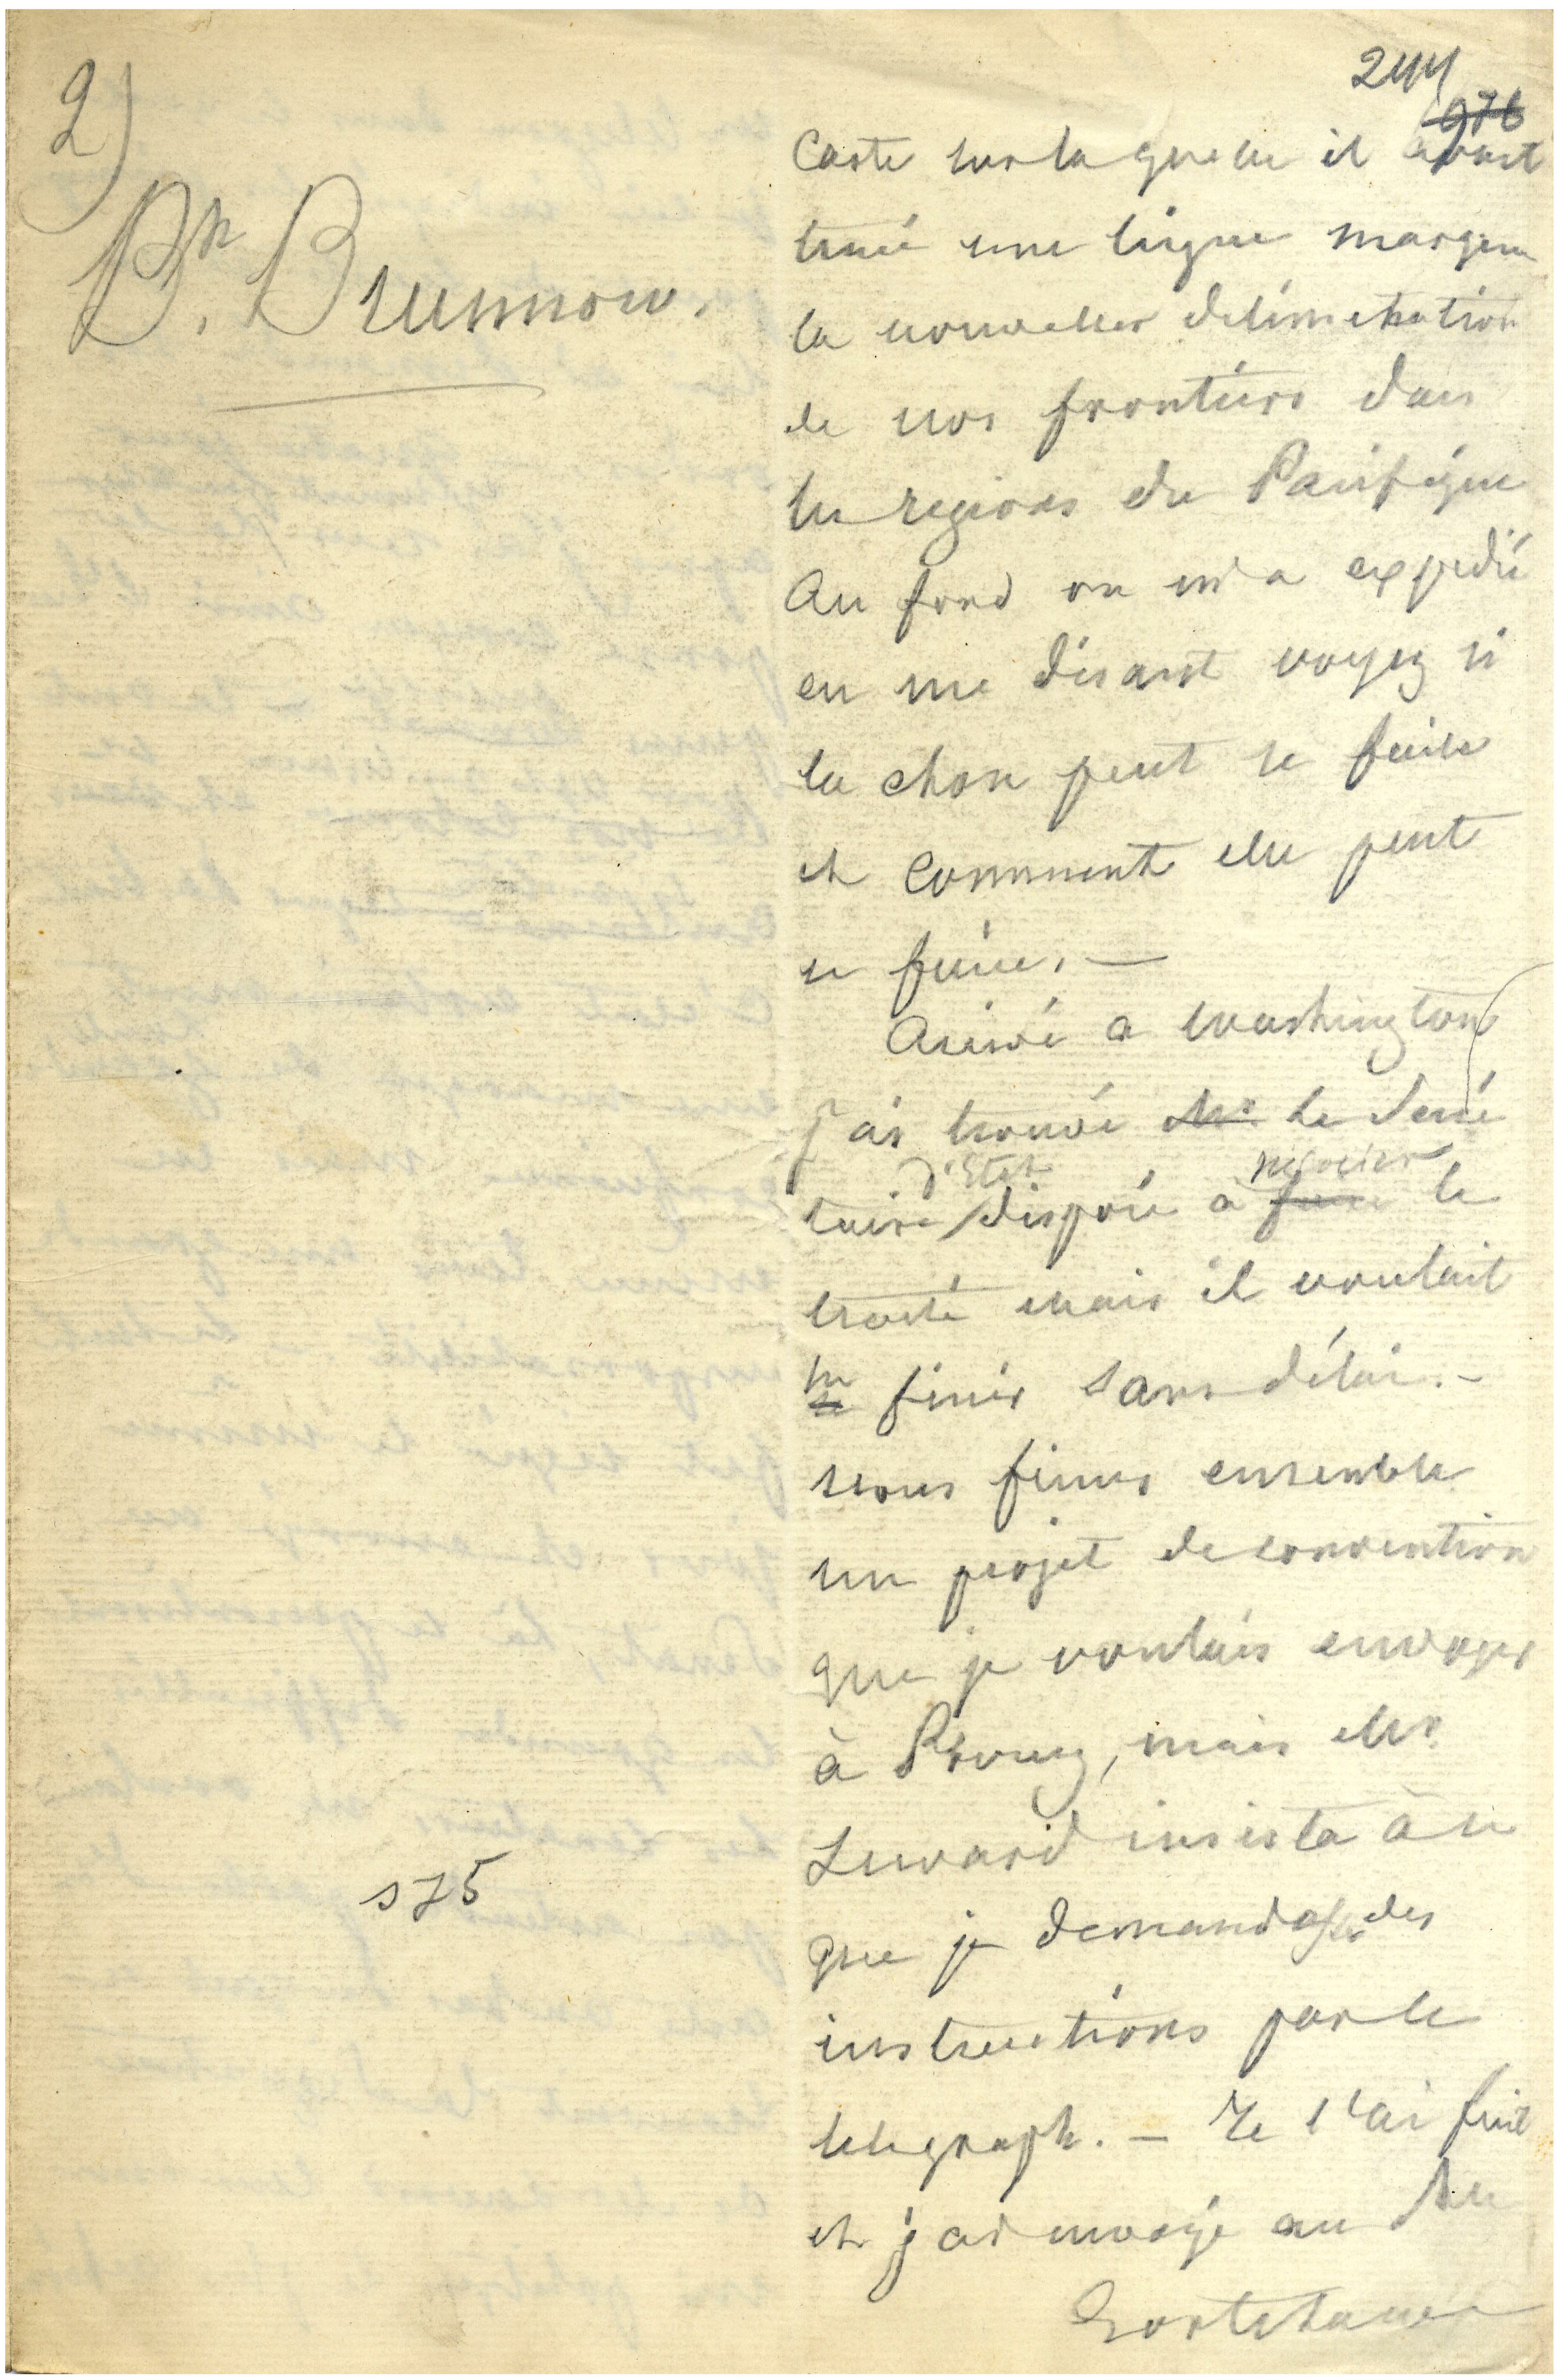 2)
Bn. Brunnow.
244
976
Carte sur la quelle il avait
tracé une ligne marquant
la nouvelles delimitation
de nos frontiers dans
les regions du Pacifique
Au fond on m'a expedié
en me disant voyez si
la chose peut se faire
et comment elle peut
se faire. —
Arrivé a Washington
j'ai trouvé Mr le Secré
taire d'Etat disposé à faire negocier le
traité mais il voulait
le finir sans délai. -
nous fimes ensemble
un projet de convention
que je voulais envoyer
à Pbourg, mais Mr
Seward insista à ce
que je demandasse des
instructions par le
telegraph. — Je l'ai fait
et j'ai envoyé au Pce
Gortchacow
975